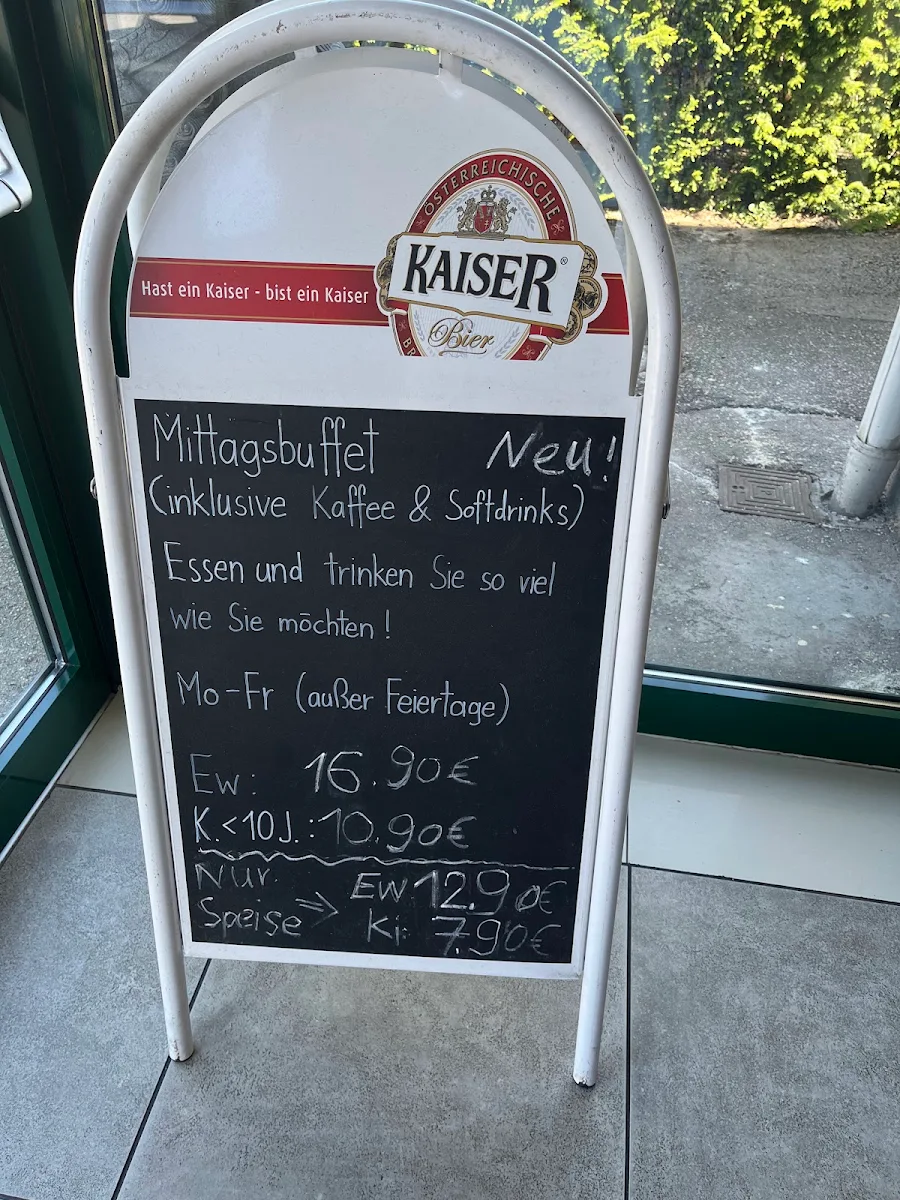 ÖSTERREICHISCHE
KAISER®
Bier
BR
Hast ein Kaiser - bist ein Kaiser
Mittagsbuffet Neu!
(inklusive Kaffee & Softdrinks)
Essen und trinken Sie so viel
wie Sie möchten!
Mo-Fr (außer Feiertage)
Ew: 16.90€
K.<10J.:10.90€
Nur Ew 12.90€
Speise ⇒ Ki: 7.90€